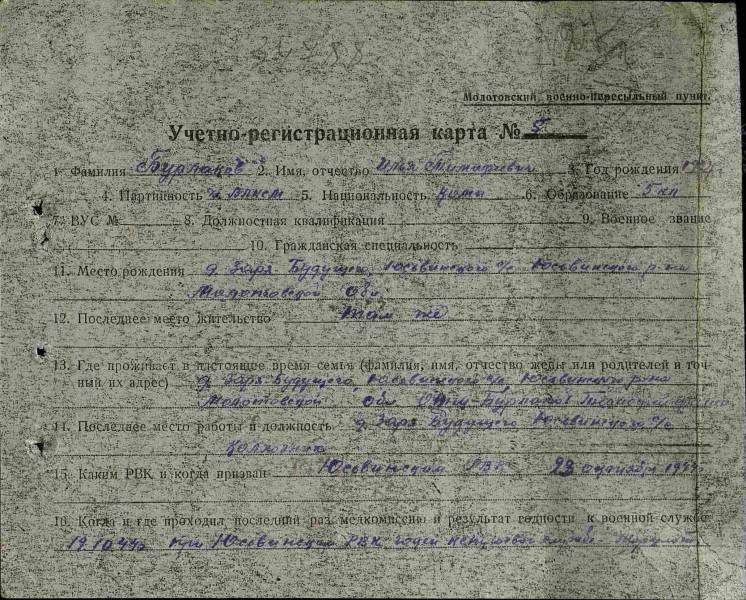 34788
Молотовский военно-пересыльный пункт.
Учетно-регистрационная карта № 5
1. Фамилия Бурлаков 2. Имя, отчество Илья Тимофеевич 3. Год рождения
4. Партийность ч. ВЛКСМ 5. Национальность коми 6. Образование 5 кл
7. ВУС № 8. Должностная квалификация 9. Военное звание
10. Гражданская специальность
11. Место рождения д. Заря Будущего, Юсьвинского с/с Юсьвинского р-на
Молотовской обл
12. Последнее место жительство там же
13. Где проживает в настоящее время семья (фамилия, имя, отчество жены или родителей и точ-
ный их адрес) д. Заря Будущего, Юсьвинского с/с, Юсьвинского р-на
Молотовской обл Отец - Бурлаков
14. Последнее место работы и должность д. Заря Будущего Юсьвинского с/с
колхозник
15. Каким РВК и когда призван Юсьвинским РВК 23 октября 1944
16. Когда и где проходил последний раз медкомиссию и результат годности к военной службе
19.10.44г при Юсьвинском РВК годен к службе